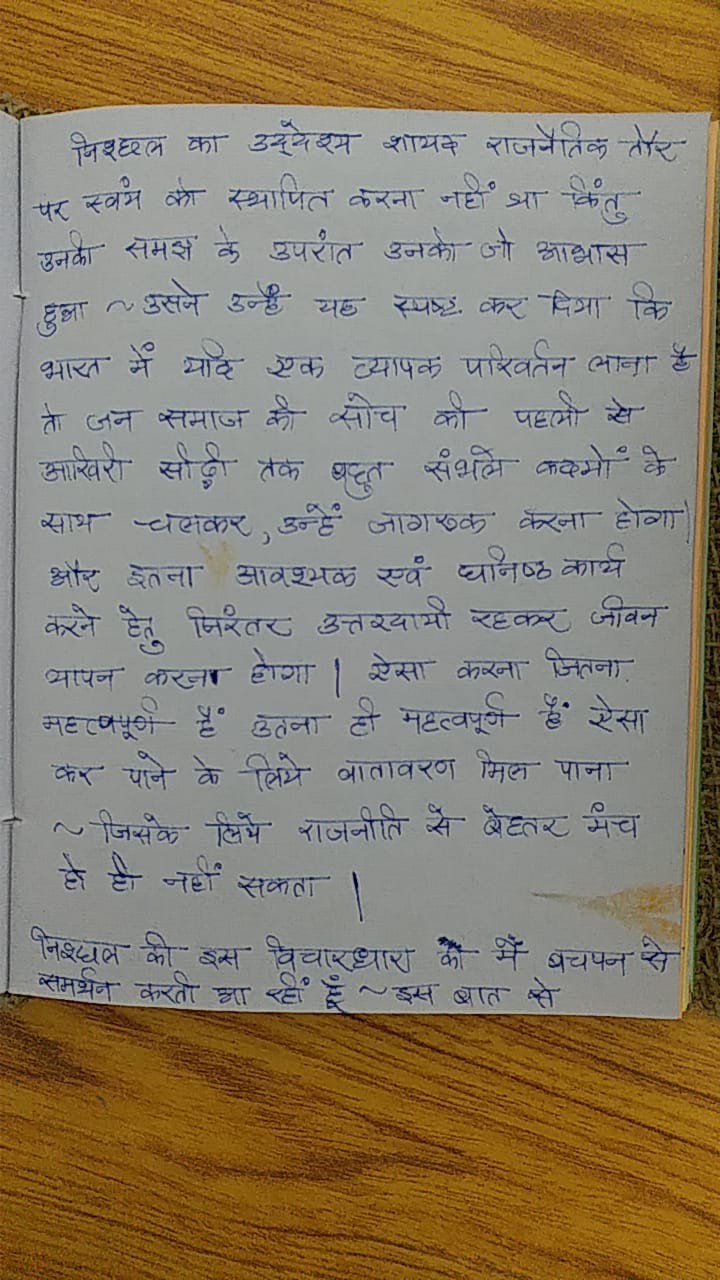 निश्छल का उद्देश्य शायद राजनैतिक तौर
पर स्वयं को स्थापित करना नहीं था किंतु
उनकी समझ के उपरांत उनको जो आभास
हुआ ~ उसने उन्हें यह स्पष्ट कर दिया कि
भारत में यदि एक व्यापक परिवर्तन लाना है
तो जन समाज की सोच की पहली से
आखिरी सीढ़ी तक बहुत संभले कदमों के
साथ चलकर, उन्हें जागरूक करना होगा।
और इतना आवश्यक एवं घनिष्ठ कार्य
करने हेतु निरंतर उत्तरदायी रहकर जीवन
यापन करना होगा। ऐसा करना जितना
महत्वपूर्ण हैं उतना ही महत्वपूर्ण हैं ऐसा
कर पाने के लिये वातावरण मिल पाना
~ जिसके लिये राजनीति से बेहतर मंच
हो ही नहीं सकता।
निश्छल की इस विचारधारा को मैं बचपन से
समर्थन करती आ रहीं हूँ ~ इस बात से